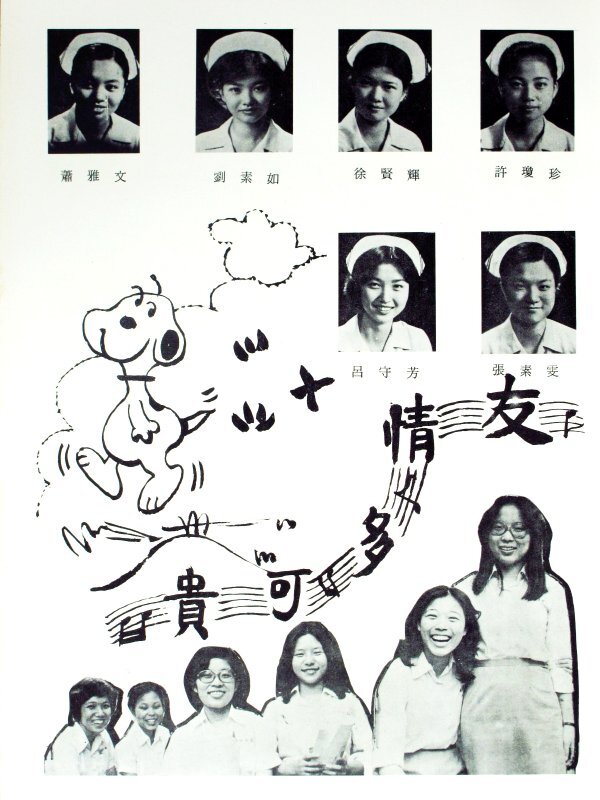 蕭雅文
劉素如
徐賢輝
許瓊珍
呂守芳
張素雯
友情多可貴